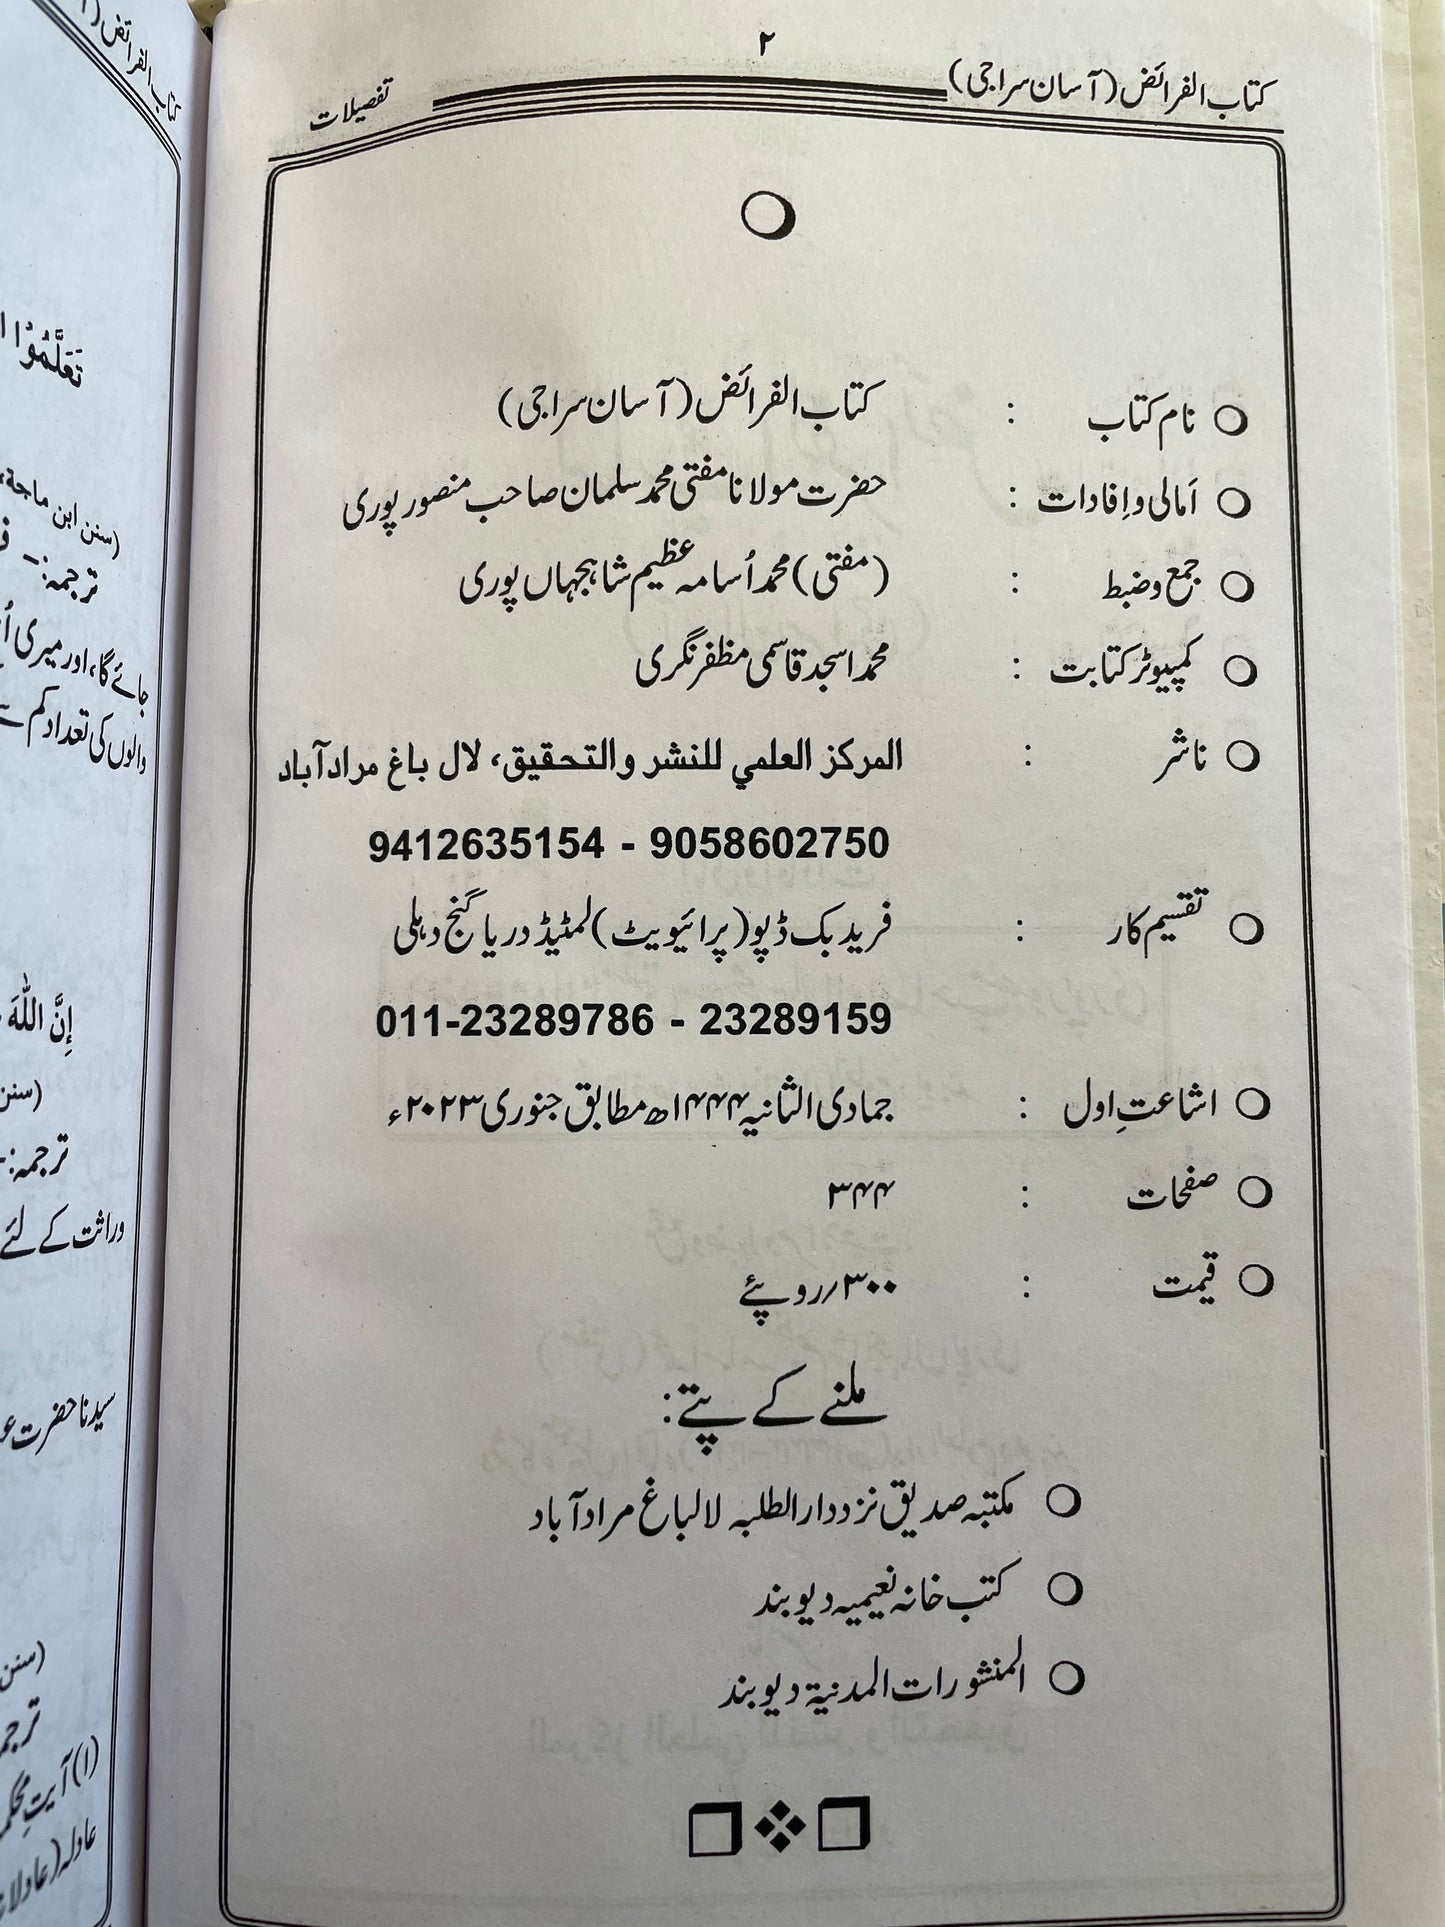 ۲
کتاب الفرائض (آسان سراجی)
تفصیلات
نام کتاب : کتاب الفرائض (آسان سراجی)
اَمالی و اِفادات : حضرت مولانا مفتی محمد سلمان صاحب منصورپوری
جمع و ضبط : (مفتی) محمد اُسامہ عظیم شاہجہاں پوری
کمپیوٹر کتابت : محمد اسجد قاسمی مظفرنگری
ناشر : المركز العلمي للنشر والتحقيق، لال باغ مراد آباد
9412635154 - 9058602750
تقسیم کار : فرید بک ڈپو (پرائیویٹ) لمٹیڈ دریا گنج دہلی
011-23289786 - 23289159
اشاعتِ اول : جمادی الثانیہ ۱۴۴۴ھ مطابق جنوری ۲۰۲۳ء
صفحات : ۳۴۴
قیمت : ۳۰۰/روپئے
ملنے کے پتے:
مکتبہ صدیق نزد دارالطلبہ لالباغ مراد آباد
کتب خانہ نعیمیہ دیوبند
المنشورات المدنیۃ دیوبند
کتاب الفرائض (آ
تَعَلَّمُوْا
(سنن ابن ماجة،
ترجمہ:–
جائے گا، اور میری
والوں کی تعداد کم
إِنَّ اللّٰهَ
(سنن
ترجمہ:-
وراثت کے لئے
سیدنا حضرت
(سنن
(۱) آیتِ
عادلہ (